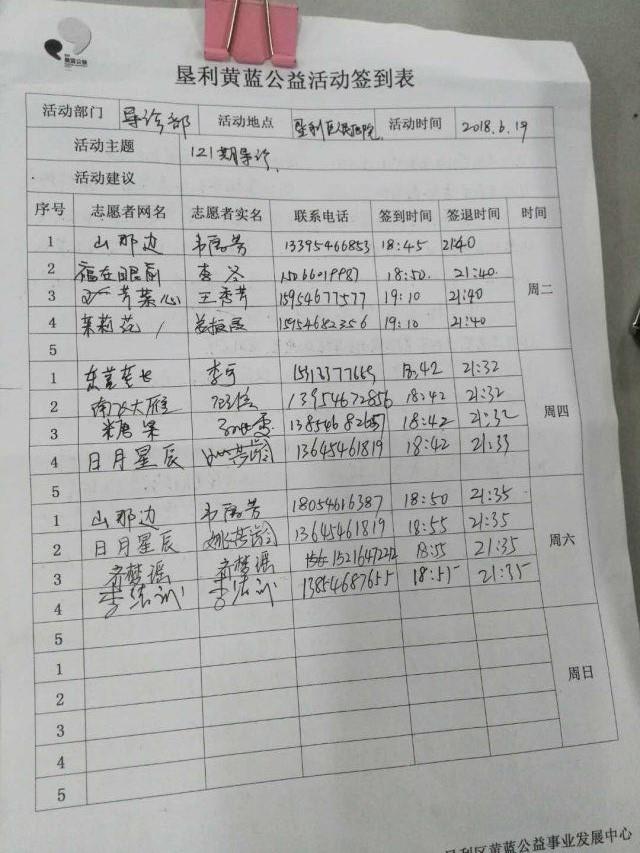 黄蓝公益
垦利黄蓝公益活动签到表
活动部门 导诊部 活动地点 垦利区人民医院 活动时间 2018.6.19
活动主题 121期导诊
活动建议
序号 志愿者网名 志愿者实名 联系电话 签到时间 签退时间 时间
1 山那边 芳 13395466853 18:45 21:40
2 福在眼前 李冬 18:50. 21:40. 周二
3 芳菜心 王秀芳 15954677577 19:10 21:40
4 茉莉花 15954682356 19:10 21:40
5
1 李 18:42 21:32
2 南飞大雁 13954672856 18:42 21:32 周四
3 糖果 18:42 21:32
4 日月星辰 13645461819 18:42 21:33
5
1 山那边 芳 18054616387 18:50 21:35
2 日月星辰 姚 13645461819 18:55 21:35 周六
3 齐梦瑶 齐梦瑶 18:55 21:35
4 李 李 13854687655 18:55 21:35
5
1
2 周日
3
4
5
垦利区黄蓝公益事业发展中心